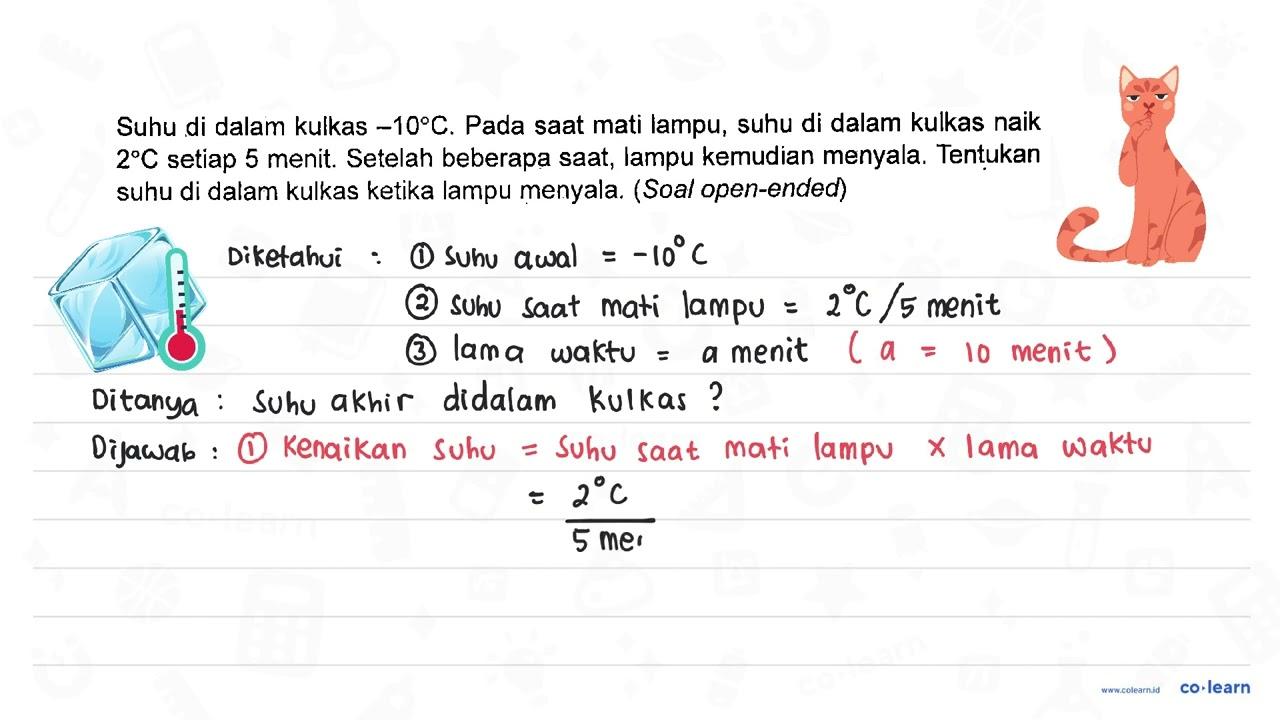 Suhu di dalam kulkas –10°C. Pada saat mati lampu, suhu di dalam kulkas naik
2°C setiap 5 menit. Setelah beberapa saat, lampu kemudian menyala. Tentukan
suhu di dalam kulkas ketika lampu menyala. (Soal open-ended)
Diketahui : ① suhu awal = -10°C
② suhu saat mati lampu = 2°C/5 menit
③ lama waktu = a menit (a = 10 menit)
Ditanya : suhu akhir didalam kulkas ?
Dijawab : ① Kenaikan suhu = suhu saat mati lampu × lama waktu
= 2°C
5 me
co·learn
co·learn
www.colearn.id co·learn